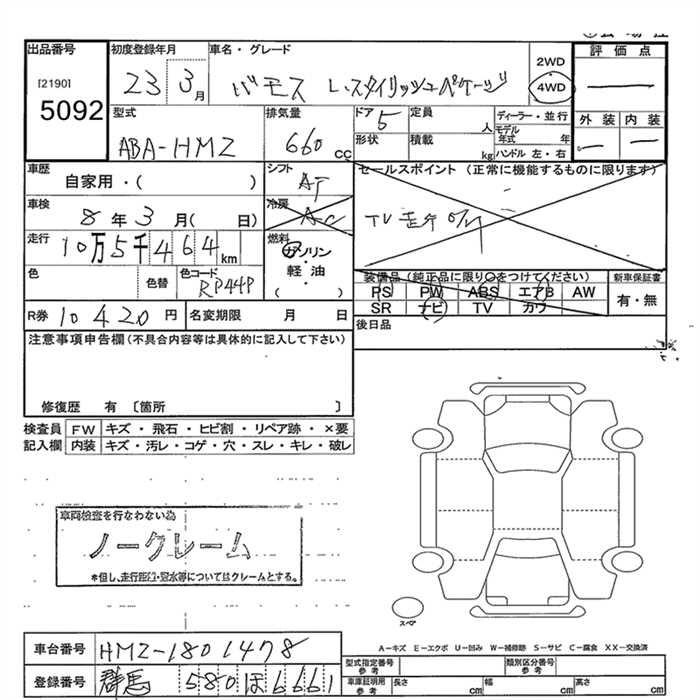 出品番号
[2190]
5092
初度登録年月
23 3月
車名・グレード
バモス L.スタイリッシュパッケージ
2WD
4WD
評価点
外装 内装
型式
ABA-HMZ
排気量
660 cc
ドア 5
定員 人
形状
積載 kg
ディーラー・並行
モデル年式 年
ハンドル 左・右
車歴
自家用・( )
シフト
AT
セールスポイント (正常に機能するものに限ります)
車検
8年3月( 日)
冷房
A-C
TV走行
走行
10万5千464km
燃料
ガソリン
軽油
( )
色
色替
色コード
RP44P
装備品(純正品に限り○をつけてください)
PS PW ABS エアB AW
SR ナビ TV カワ
新車保証書
有・無
R券 10420円
名変期限 月 日
後日品
注意事項申告欄(不具合内容等は具体的に記入して下さい)
修復歴 有 〔箇所 〕
検査員記入欄
FW キズ・飛石・ヒビ割・リペア跡・×要
内装 キズ・汚レ・コゲ・穴・スレ・キレ・破レ
車両検査を行なわない為
ノークレーム
*但し、走行距離・冠水等についてはクレームとする。
スペア
A-キズ E-エクボ U-凹み W-補修跡 S-サビ C-腐食 XX-交換済
車台番号 HMZ-1801478
登録番号 群馬 580 ほ 6661
型式指定番号 参考
類別区分番号 参考
車庫証明用 参考
長さ cm
幅 cm
高さ cm